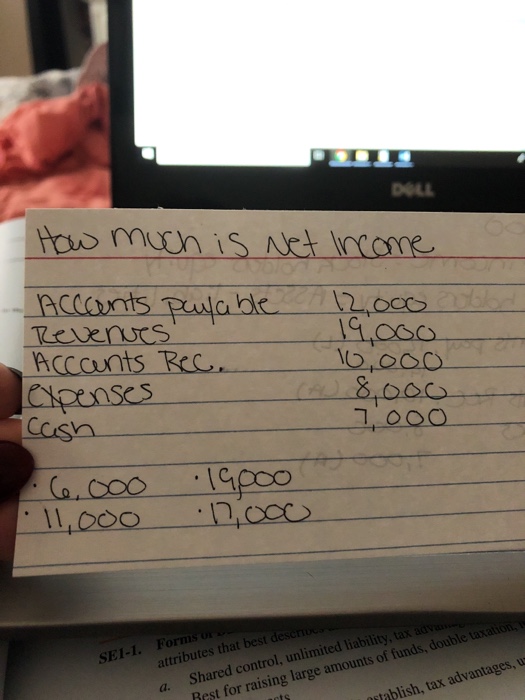 DELL
How much is Net Income
Accounts payable 12,000
Revenues 19,000
Accounts Rec. 10,000
expenses 8,000
Cash 7,000
· 6,000 · 19,000
· 11,000 · 17,000
SE1-1. Forms
attributes that best
a. Shared control, unlimited liability, tax
Best for raising large amounts of funds, double taxation,
establish, tax advantages,